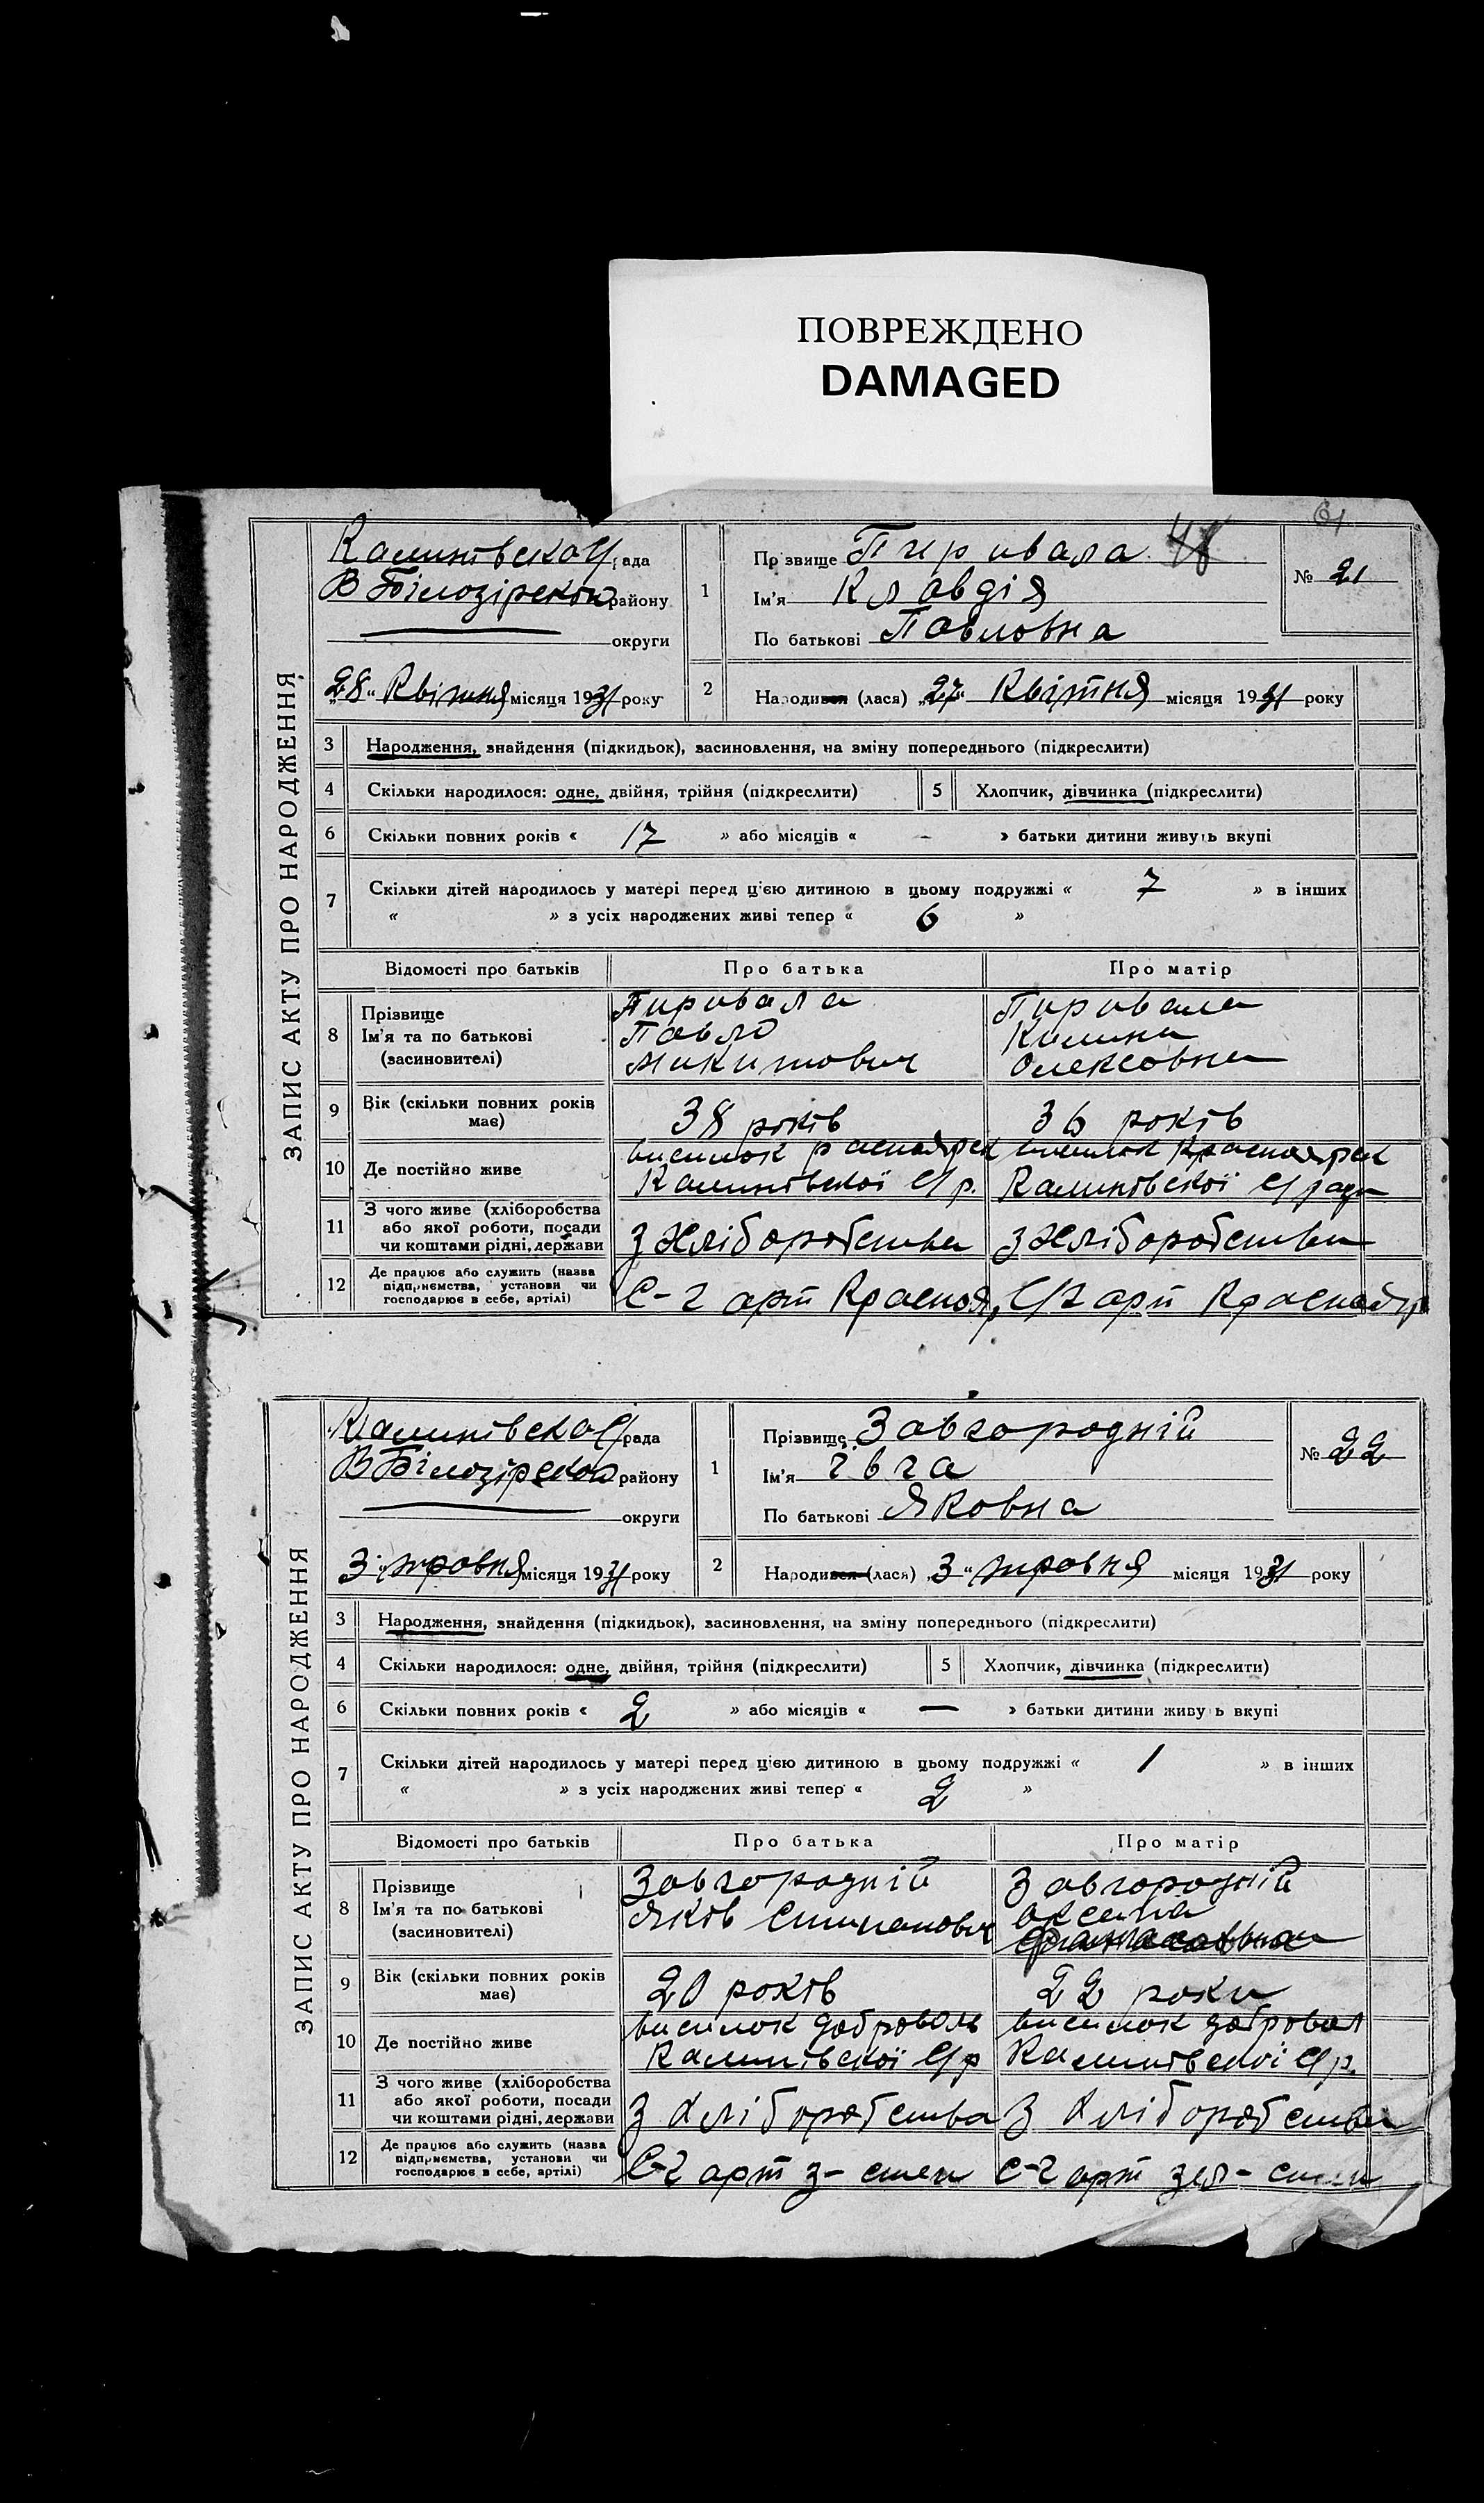 ПОВРЕЖДЕНО
DAMAGED
61
ЗАПИС АКТУ ПРО НАРОДЖЕННЯ
Калинівсько С/рада
В Білозірсько району
округи
„28“ Квітня місяця 1931 року
1
Прізвище Пировала 48
Ім'я Клавдія
По батькові Павловна
№ 21
2 Народився (лася) „27“ Квітня місяця 1931 року
3 Народження, знайдення (підкидьок), засиновлення, на зміну попереднього (підкреслити)
4 Скільки народилося: одне, двійня, трійня (підкреслити) 5 Хлопчик, дівчинка (підкреслити)
6 Скільки повних років « 17 » або місяців « – » батьки дитини живуть вкупі
7 Скільки дітей народилось у матері перед цією дитиною в цьому подружжі « 7 » в інших
« » з усіх народжених живі тепер « 6 »
Відомості про батьків Про батька Про матір
8 Прізвище Пировала Пировала
Ім'я та по батькові Павло Килина
(засиновителі) Микитович Олексовна
9 Вік (скільки повних років має) 38 років 36 років
10 Де постійно живе
виселок расноярск виселок Красноярск
Калинівської С/р. Калинівської С/ради
11 З чого живе (хліборобства
або якої роботи, посади
чи коштами рідні, держави
з хліборобства з хліборобства
12 Де працює або служить (назва
підприємства, установи чи
господарює в себе, артілі)
С-г арт Краснояр, С/г арт Краснояр
ЗАПИС АКТУ ПРО НАРОДЖЕННЯ
Калинівсько С/рада
В Білозірсько району
округи
„3“ травня місяця 1931 року
1
Прізвище Завгородній
Ім'я Ївга
По батькові Яковна
№ 22
2 Народився (лася) „3“ травня місяця 1931 року
3 Народження, знайдення (підкидьок), засиновлення, на зміну попереднього (підкреслити)
4 Скільки народилося: одне, двійня, трійня (підкреслити) 5 Хлопчик, дівчинка (підкреслити)
6 Скільки повних років « 2 » або місяців « — » батьки дитини живуть вкупі
7 Скільки дітей народилось у матері перед цією дитиною в цьому подружжі « 1 » в інших
« » з усіх народжених живі тепер « 2 »
Відомості про батьків Про батька Про матір
8 Прізвище Завгородній Завгородній
Ім'я та по батькові Яків Стипанович Оксана
(засиновителі)
9 Вік (скільки повних років має) 20 років 22 роки
10 Де постійно живе
виселок доброволь виселок добровол
Калинівської С/р Калинівської С/р.
11 З чого живе (хліборобства
або якої роботи, посади
чи коштами рідні, держави
З хліборобства З хліборобства
12 Де працює або служить (назва
підприємства, установи чи
господарює в себе, артілі)
С-г арт з- степ С-г арт зел- степ